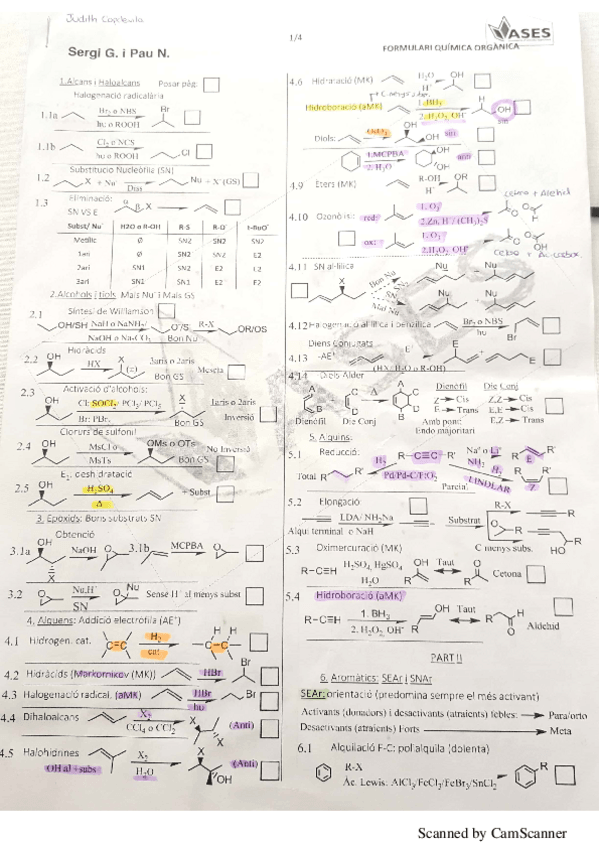 Judith Capdevila
Sergi G. i Pau N.
1/4
VASES
FORMULARI QUÍMICA ORGÀNICA
1.Alcans i Haloalcans Posar pèg:
Halogenació radicalària
1.1a Br₂ o NBS
hν o ROOH
Br
1.1b Cl₂ o NCS
hν o ROOH
Cl
1.2 Substitució Nucleòfila (SN)
X + Nu⁻ Diss Nu + X⁻(GS)
1.3 Eliminació: α β X
SN VS E
Subst/ Nu⁻ H2O o R-OH R-S⁻ R-O⁻ t-BuO⁻
Metílic Ø SN2 SN2 SN2
1ari Ø SN2 SN2 E2
2ari SN1 SN2 E2 E2
3ari SN1 SN2 E2 E2
2.Alcohols i tiols: Mais Nu⁻ i Mals GS
2.1 Síntesi de Williamson
OH/SH NaH o NaNH₂/ O⁻/S⁻ R-X OR/OS
NaOH o Na-CO₃ Bon Nu⁻
2.2 Hidràcids
OH HX X (±) 3aris o 2aris Mescla
Bon GS
2.3 Activació d'alcohols:
OH Cl: SOCl₂/ PCl₃/ PCl₅ X 1aris o 2aris
Br: PBr₃ Bon GS Inversió
Clorurs de sulfonil
2.4 OH MsCl o OMs o OTs No Inversió
MsTs Bon GS
E₂, deshidratació
2.5 OH H₂SO₄ + Subst
Δ
3. Epòxids: Bons substrats SN
Obtenció
3.1a OH NaOH O 3.1b MCPBA O
X
3.2 O Nu,H⁺ O Nu Sense H⁺ al menys subst
SN
4. Alquens: Addició electròfila (AE⁺)
4.1 Hidrogen. cat. C=C H₂ H H
cat C-C
4.2 Hidràcids (Markornikov (MK)) HBr Br
4.3 Halogenació radical. (aMK) HBr Br
hν
4.4 Dihaloalcans X₂ X (Anti)
CCl₄ o CCl₂ X
4.5 Halohidrines X₂ X (Anti)
OH al + subs H₂O OH
4.6 Hidratació (MK) H₂O OH
H⁺
Hidroboració (aMK) 1. BH₃ H
2. H₂O₂, OH⁻ OH
sin
Diols: OH OH sin
1.MCPBA OH anti
2. H₂O OH
4.9 Èters (MK) R-OH OR
H⁺
4.10 Ozonòlisi: red: 1. O₃
2.Zn, H⁺/ (CH₃)₂S
ox: 1. O₃
2.H₂O₂, OH⁻
4.11 SN al·lílica Nu Nu
X Bon Nu
Mal Nu Nu Nu
4.12 Halogenació al·lílica i benzílica Br₂ o NBS
hν Br
Diens Conjugats
4.13 -AE⁺ E⁺ E E
(HX: H₂O o R-OH)
4.14 Diels Alder
A C A C Dienòfil Die Conj
B D B D Z → Cis Z,Z → Cis
E → Trans E,E → Cis
Dienòfil Die Conj Amb pont: E,Z → Trans
Endo majoritari
5. Alquins.
5.1 Reducció: Na° o Li° E
H₂ R-C≡C-R NH₃
Total Pd/Pd-C/PtO₂ H₂
Parcial LINDLAR Z
5.2 Elongació R-X C≡C-R
LDA/ NH₂Na Substrat O
Alquí terminal o NaH C menys subs. HO
5.3 Oximercuració (MK)
R-C≡H H₂SO₄, HgSO₄ OH Taut O Cetona
H₂O R R
5.4 Hidroboració (aMK)
R-C≡H 1. BH₃ OH Taut H
2. H₂O₂, OH⁻ R R O Aldehid
PART II
6. Aromàtics: SEAr i SNAr
SEAr: orientació (predomina sempre el més activant)
Activants (donadors) i desactivants (atraients) febles: Para/orto
Desactivants (atraients) Forts Meta
6.1 Alquilació F-C: polialquila (dolenta)
R-X R
Àc. Lewis. AlCl₃/FeCl₃/FeBr₃/SnCl₂
Scanned by CamScanner